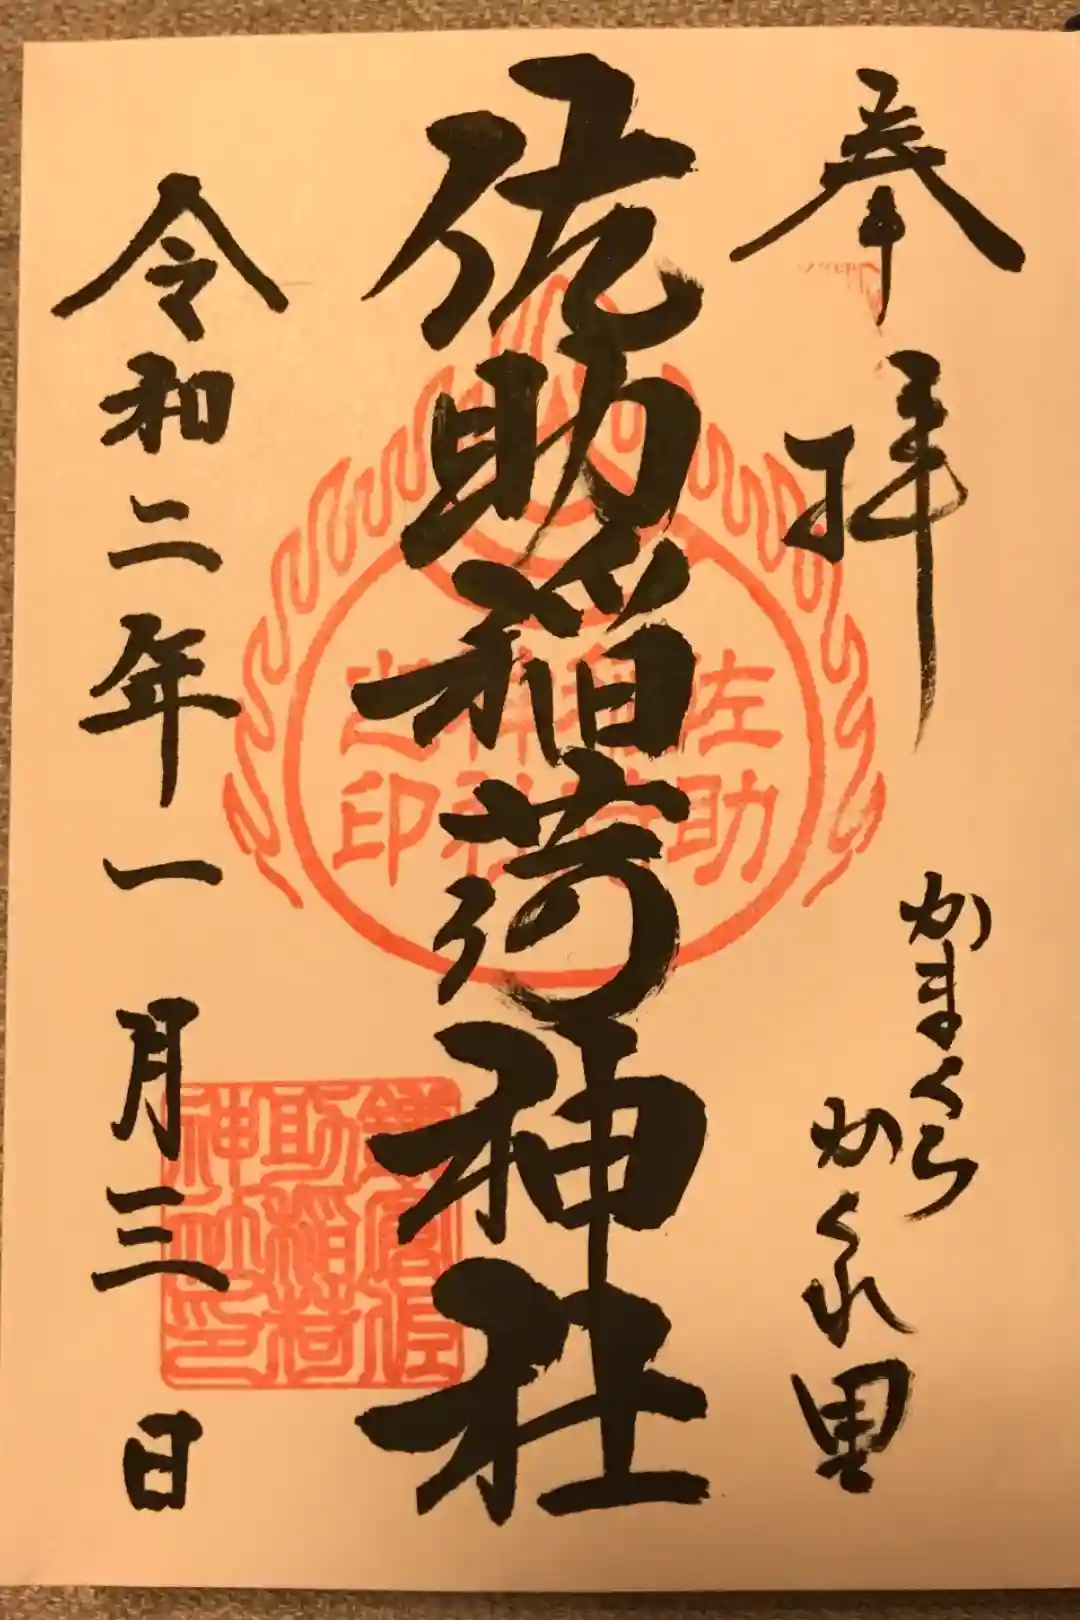 奉拝
かまくら
かくれ里
佐助稲荷神社
令和二年一月三日
佐助
稲荷
神社
之印
鎌倉佐
助稲荷
神社印